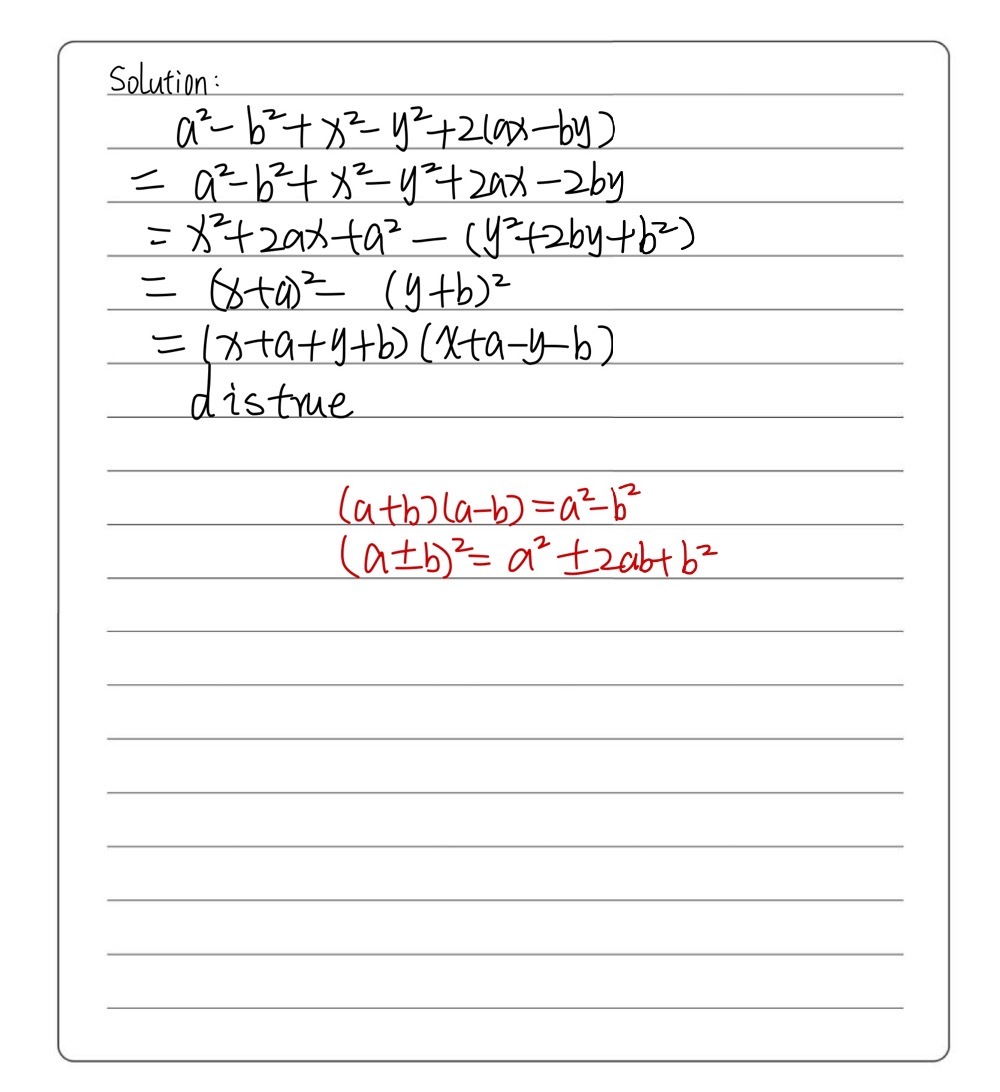 Solution:
a²-b²+x²-y²+2(ax-by)
= a²-b²+x²-y²+2ax-2by
= x²+2ax+a²-(y²+2by+b²)
= (x+a)²-(y+b)²
= (x+a+y+b)(x+a-y-b)
d is true
(a+b)(a-b)=a²-b²
(a±b)²=a²±2ab+b²